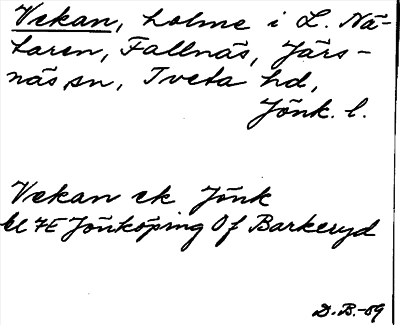 Vekan, holme i L. Nä-
taren, Fallnäs, Järs-
näs sn, Tveta hd,
Jönk. l.
Vekan ek Jönk
bl 7E Jönköping Of Barkeryd
D.B.-59